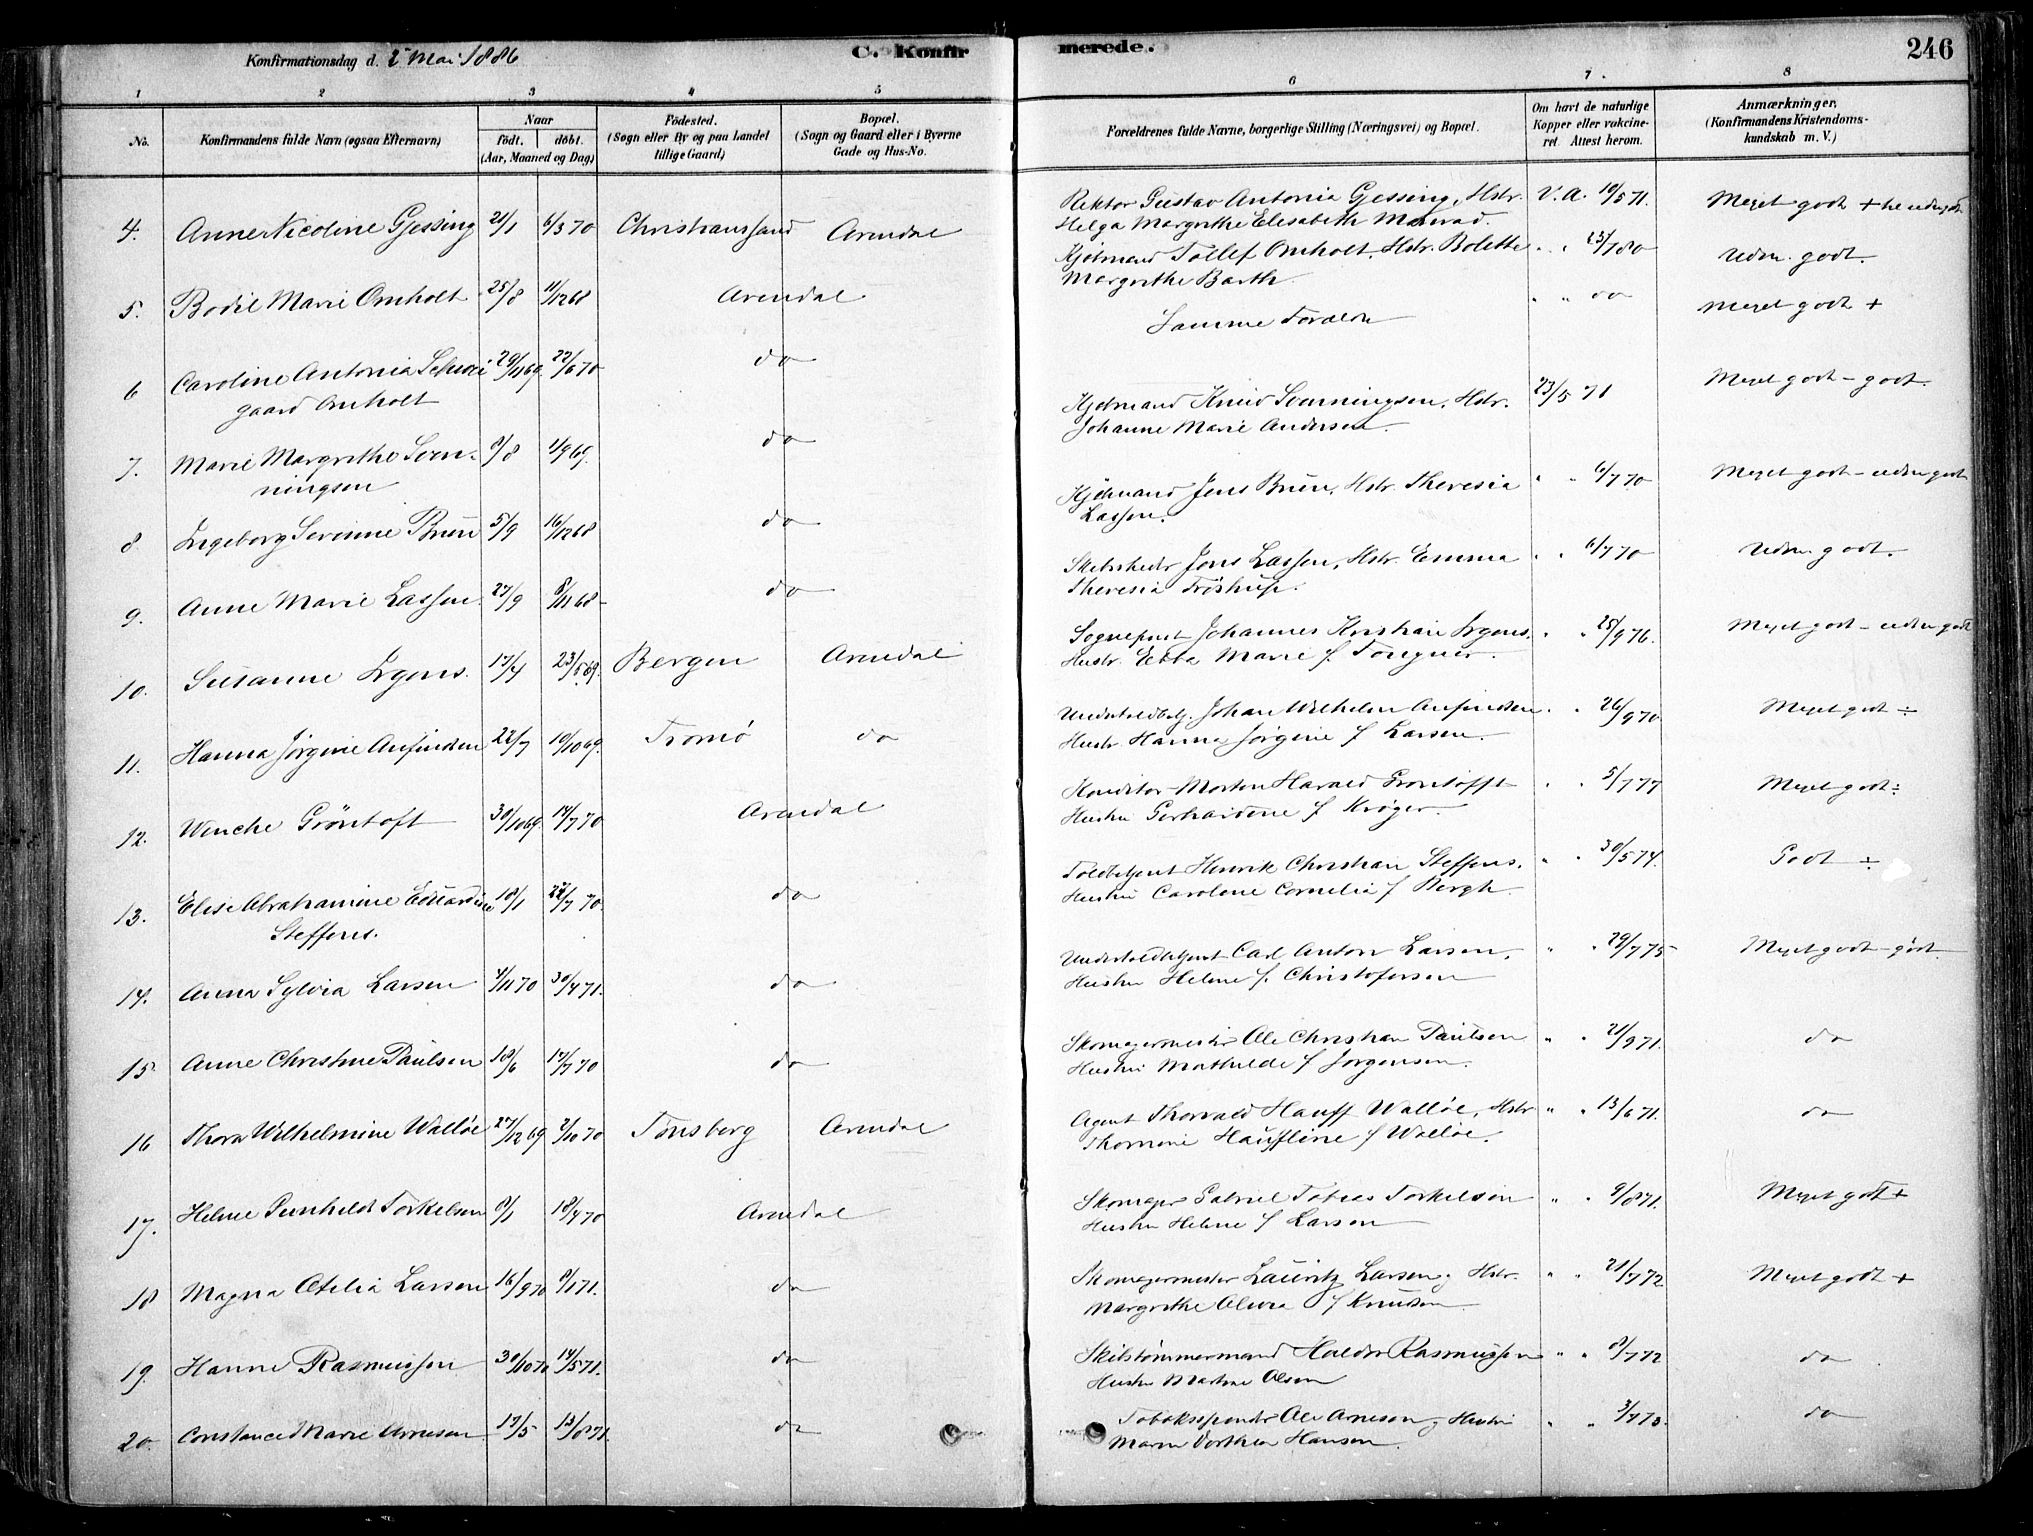 Konfirmationsdag d. 2 Mai 1886
C. Konfirmerede.
246
1 2 3 4 5 6 7. 8
No.
Konfirmandens fulde Navn (ogsaa Efternavn)
Naar
født. døbt.
(Aar, Maaned og Dag)
Fødested.
(Sogn eller By og paa Landet
tillige Gaard)
Bopæl.
(Sogn og Gaard eller i Byerne
Gade og Hus-No.
Forældrenes fulde Navne, borgerlige Stilling (Næringsvei) og Bopæl.
Om havt de naturlige
Kopper eller vakcine-
ret Attest herom.
Anmærkninger.
(Konfirmandens Kristendoms-
kundskab m. V.)
4. Anne Nicoline Gjessing 21/1 6/3 70 Christianssand Arendal
Rektor Gustav Antonia Gjessing, Hstr. V. A. 10/5 71. Meget godt +
Helga Margrethe Elisabeth Monrad.
5. Bodil Marie Omholt 25/8 11/12 68 Arendal
Kjøbmand Tollef Omholt, Hstr. Bolette " " 23/7 80 Udm. godt.
Margrethe Barth
6 Caroline Antonia Schwei- 29/11 69. 22/6 70 do
gaard Omholt
Samme Forældre " " do Meget godt +
7. Marie Margrethe Sven- 8/8 1/9 69. do
ningsen
Kjøbmand Knud Svenningsen, Hstr. 23/5 71 Meget godt - godt.
Johanne Marie Andersen
8. Ingeborg Severine Bruun 5/9 16/12 68 do
Kjøbmand Jens Bruun, Hstr. Theresia " " 6/7 70 Meget godt - udm godt
Lassen.
9. Anne Marie Lassen 27/9 8/11 68 - do
Skibsreder Jens Lassen, Hstr. Emma " " 6/7 70 Udm. godt.
Theresia Frøstrup.
10. Susanne Irgens. 17/4 23/5 69. Bergen Arendal
Sogneprest Johannes Kristian Irgens. " " 25/9 76. Meget godt - udm godt
Hustr. Ebba Marie f.
11. Hanna Jørgine Anfindsen 22/7 10/10 69. Tromø do
Undertoldbetj. Johan Wilhelm Anfindsen " " 26/9 70 Meget godt ÷
Hustr. Hanna Jørgine f Larsen.
12. Wenche Grøntoft 30/10 69. 14/7 70 Arendal
Konditor Morten Harald Grøntofft " " 5/7 77 Meget godt ÷
Hustru Gerhardine f Krøger.
13. Elise Abrahamine Edvardine 18/1 22/7 70. do
Steffens.
Toldbetjent Henrik Christian Steffens. " " 30/5 74. Godt ÷
Hustru Caroline Cornelia f Bergh
14. Anna Sylvia Larsen 4/11 70 30/4 71. do
Undertoldbetjent Carl Anton Larsen, " " 29/7 75 Meget godt - godt.
Hustru Helene f. Christofersen
15 Anne Christine Paulsen 18/6 17/7 70 do
Skomagermester Ole Christian Paulsen " " 21/9 71. do
Hustru Mathilde f Jørgensen.
16 Thora Wilhelmine Walløe 27/12 69 2/10 70 Tønsberg Arendal
Agent Thorvald Hauff Walløe, Hstr " " 13/6 71. do
Thomine Hauffline f Walløe.
17. Helene Gunhild Torkelsen 8/1 18/4 70 Arendal
Skomager Gabriel Tobias Torkelsen " " 9/8 71. Meget godt +
Hustru Helene f Larsen
18 Magna Otelia Larsen 16/9 70 8/1 71. do
Skomagermester Lauritz Larsen, Hstr. " " 21/7 72 Meget godt +
Margrethe Olivia f Knudsen
19. Hanne Rasmussen 30/10 70 14/5 71. do
Skibstømmermand Halvor Rasmussen " " 8/7 72 do
Hustru Martine Olsen
20. Constance Marie Arnesen 17/5 13/8 71. do
Tobaksspinder Ole Arnesen, Hustru " " 3/7 73. do
Maren Dorthea Hansen.